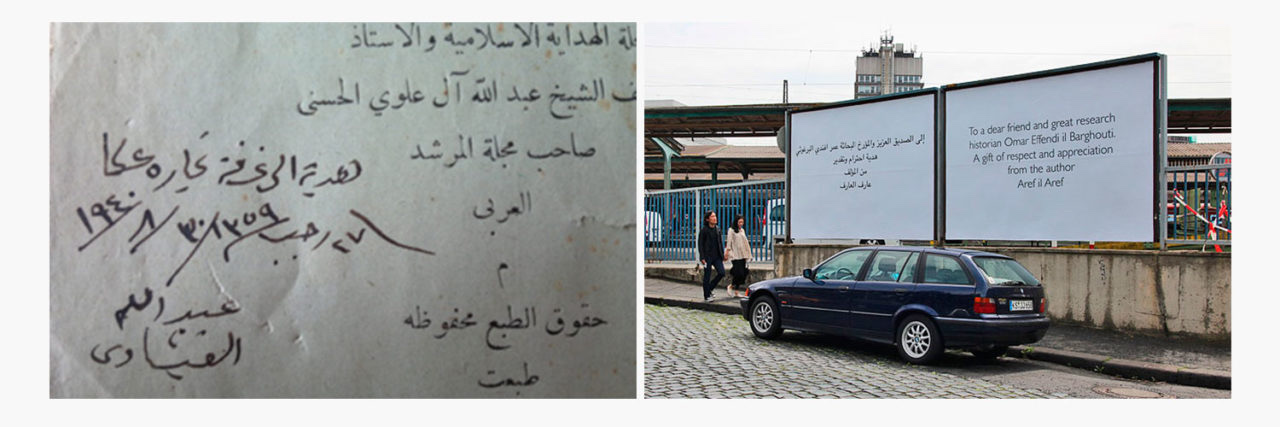 لة الهداية الاسلامية والاستاذ
ف الشيخ عبد الله آل علوي الحسنى
صاحب مجلة المرشد
العربى
م
حقوق الطبع محفوظه
طبعت
هدية الى غرفة تجارة عكا
٢٧ رجب ١٣٥٩ ٣٠/٨/١٩٤٠
عبد الله
إلى الصديق العزيز والمؤرخ البحاثة عمر افندي البرغوثي
هدية احترام وتقدير
من المؤلف
عارف العارف
To a dear friend and great research
historian Omar Effendi il Barghouti.
A gift of respect and appreciation
from the author
Aref il Aref